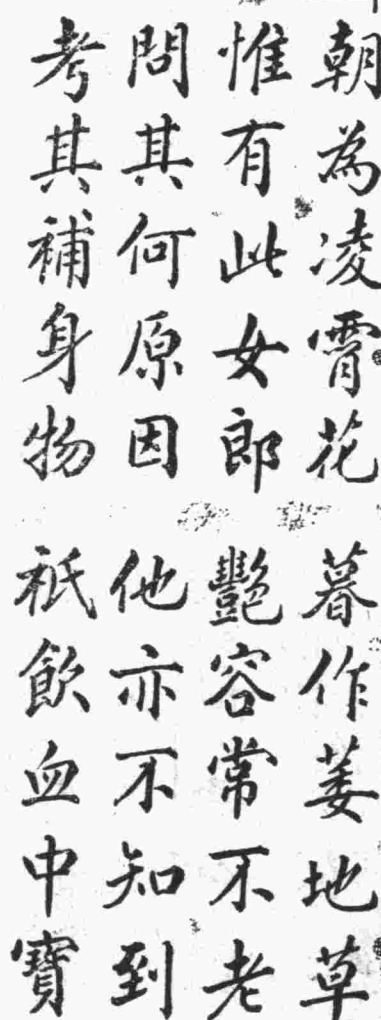 朝為凌霄花　暮作萎地草
惟有此女郎　艷容常不老
問其何原因　他亦不知到
考其補身物　祇飲血中寶